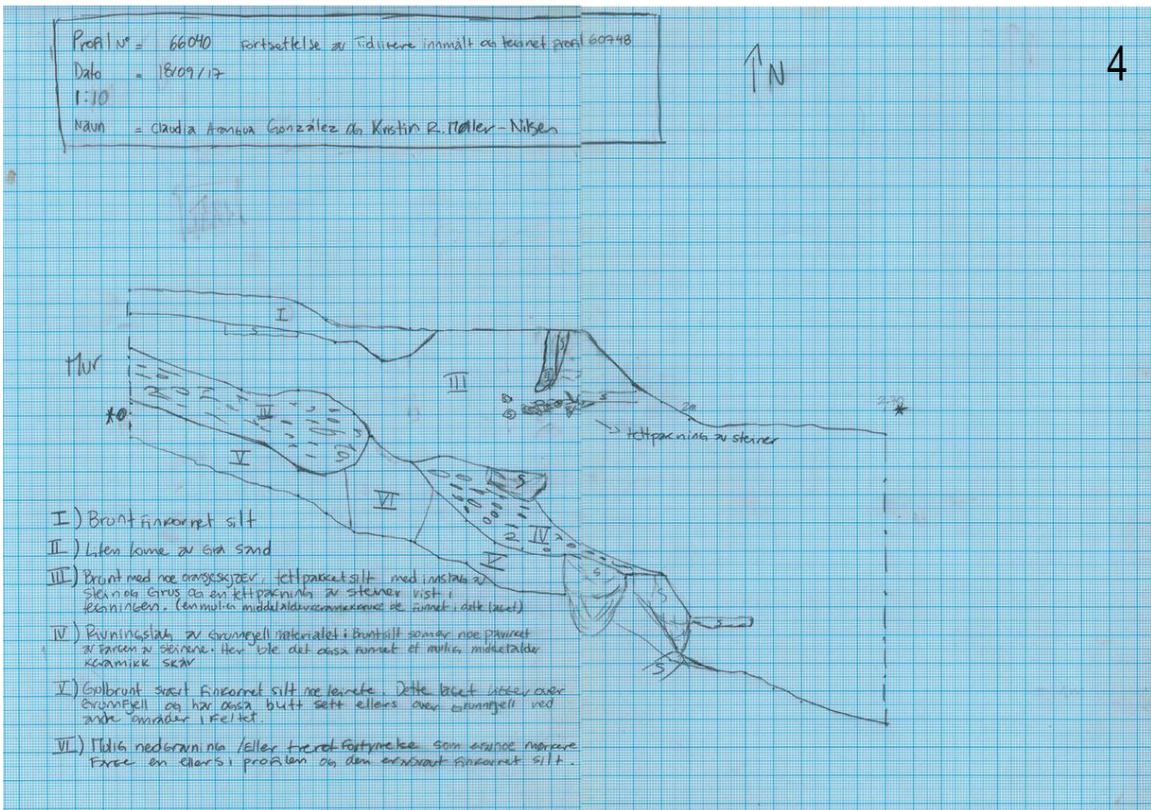 Profil Nº = 66040 Fortsettelse av Tidligere innmålt og tegnet profil 60748
Dato = 18/09/17
1:10
Navn = Claudia González og Kristin R. Møller-Nilsen
↑N
4
I
S
Mur
III
S
S
IV
S
20
270
*0
*
→ tettpakning av steiner
V
S
VI
S
IV
V
S
S
S
S
I) Brunt Finkornet silt
II) Liten lomme av Grå Sand
III) Brunt med noe oransjeskjær, tettpakket silt med innslag av
Stein og Grus og en tettpakning av steiner vist i
tegningen. (en mulig ble funnet i dette laget)
IV) Rivningslag av Grunnfjell materialet i Brunt silt som er noe påvirket
av Fargen av steinene. Her ble det også funnet et mulig middelalder
keramikk skår
V) Gulbrunt svært Finkornet silt noe leirete. Dette laget ligger over
Grunnfjell og har også blitt sett ellers over Grunnfjell ved
andre områder i Feltet.
VI) Mulig nedgravning /Eller som noe mørkere
Farge en ellers i profilen og den er Finkornet silt.